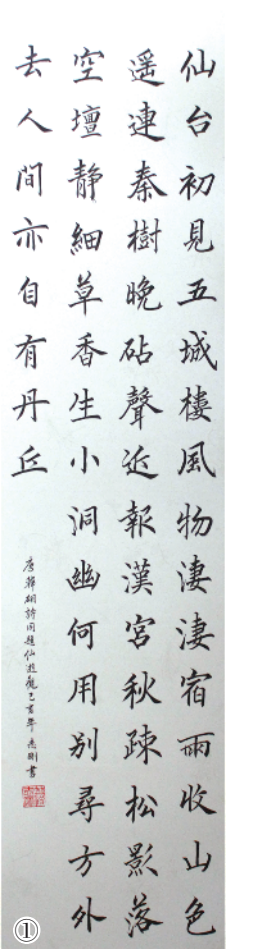 仙台初見五城樓風物淒淒宿雨收山色
遥連秦樹晚砧聲近報漢宮秋疎松影落
空壇靜細草香生小洞幽何用別尋方外
去人間亦自有丹丘
唐韓翃詩同題仙遊觀己亥年志剛書
①